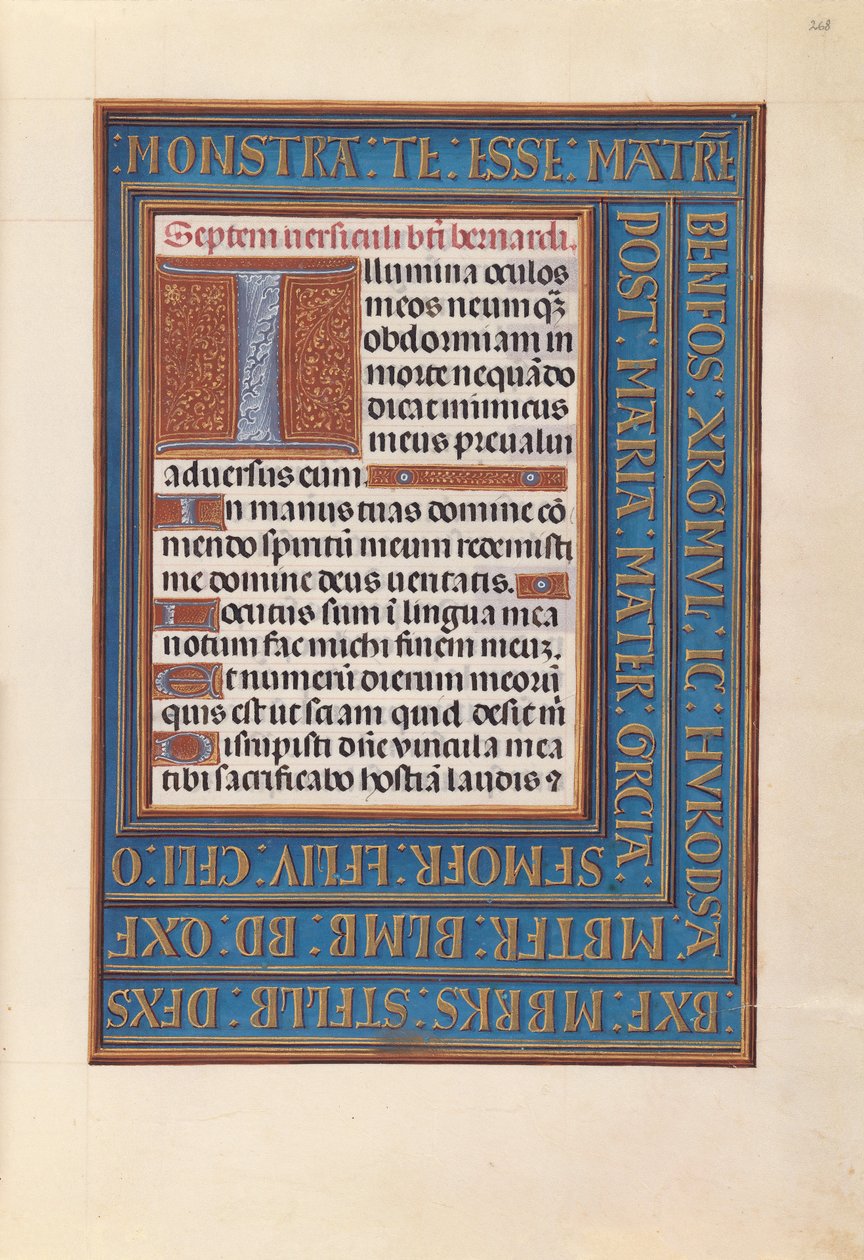 268
:MONSTRA:TE:ESSE:MATRẼ
BENFOS:XRGMVL·IC·HVKODSA
POST·MARIA·MATER·GRCIA·
Septem uersiculi bti bernardi.
Illumina oculos
meos ne umqꝫ
obdormiam in
morte ne quãdo
dicat inimicus
meus preualui
aduersus eum.
In manus tuas domine cõ
mendo spiritũ meum redemisti
me domine deus ueritatis.
Locutus sum ĩ lingua mea
notum fac michi finem meuꝫ.
Et numerũ dierum meorũ
quis est ut sciam quid desit m̃
Dirupisti dñe vincula mea
tibi sacrificabo hostiã laudis ⁊
SFMOFR:EFLIV·CFLI:O
MBTFR:BLMB·BD·QXF
:BXF:MBRKS:STFLLB·DFXS